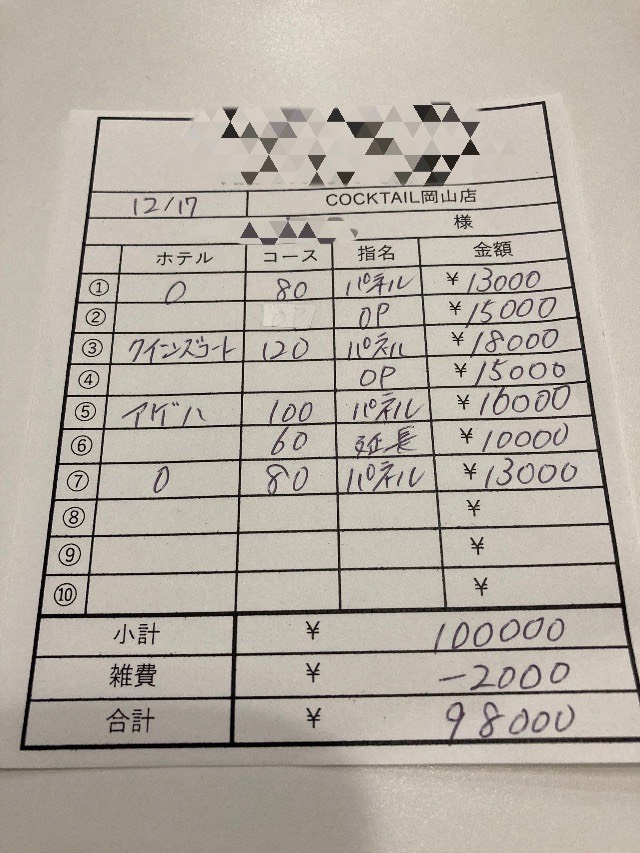 12/17 COCKTAIL岡山店
様
ホテル コース 指名 金額
① O 80 パネル ¥13000
② OP ¥15000
③ クインズコート 120 パネル ¥18000
④ OP ¥15000
⑤ アゲハ 100 パネル ¥16000
⑥ 60 延長 ¥10000
⑦ O 80 パネル ¥13000
⑧ ¥
⑨ ¥
⑩ ¥
小計 ¥ 100000
雑費 ¥ -2000
合計 ¥ 98000